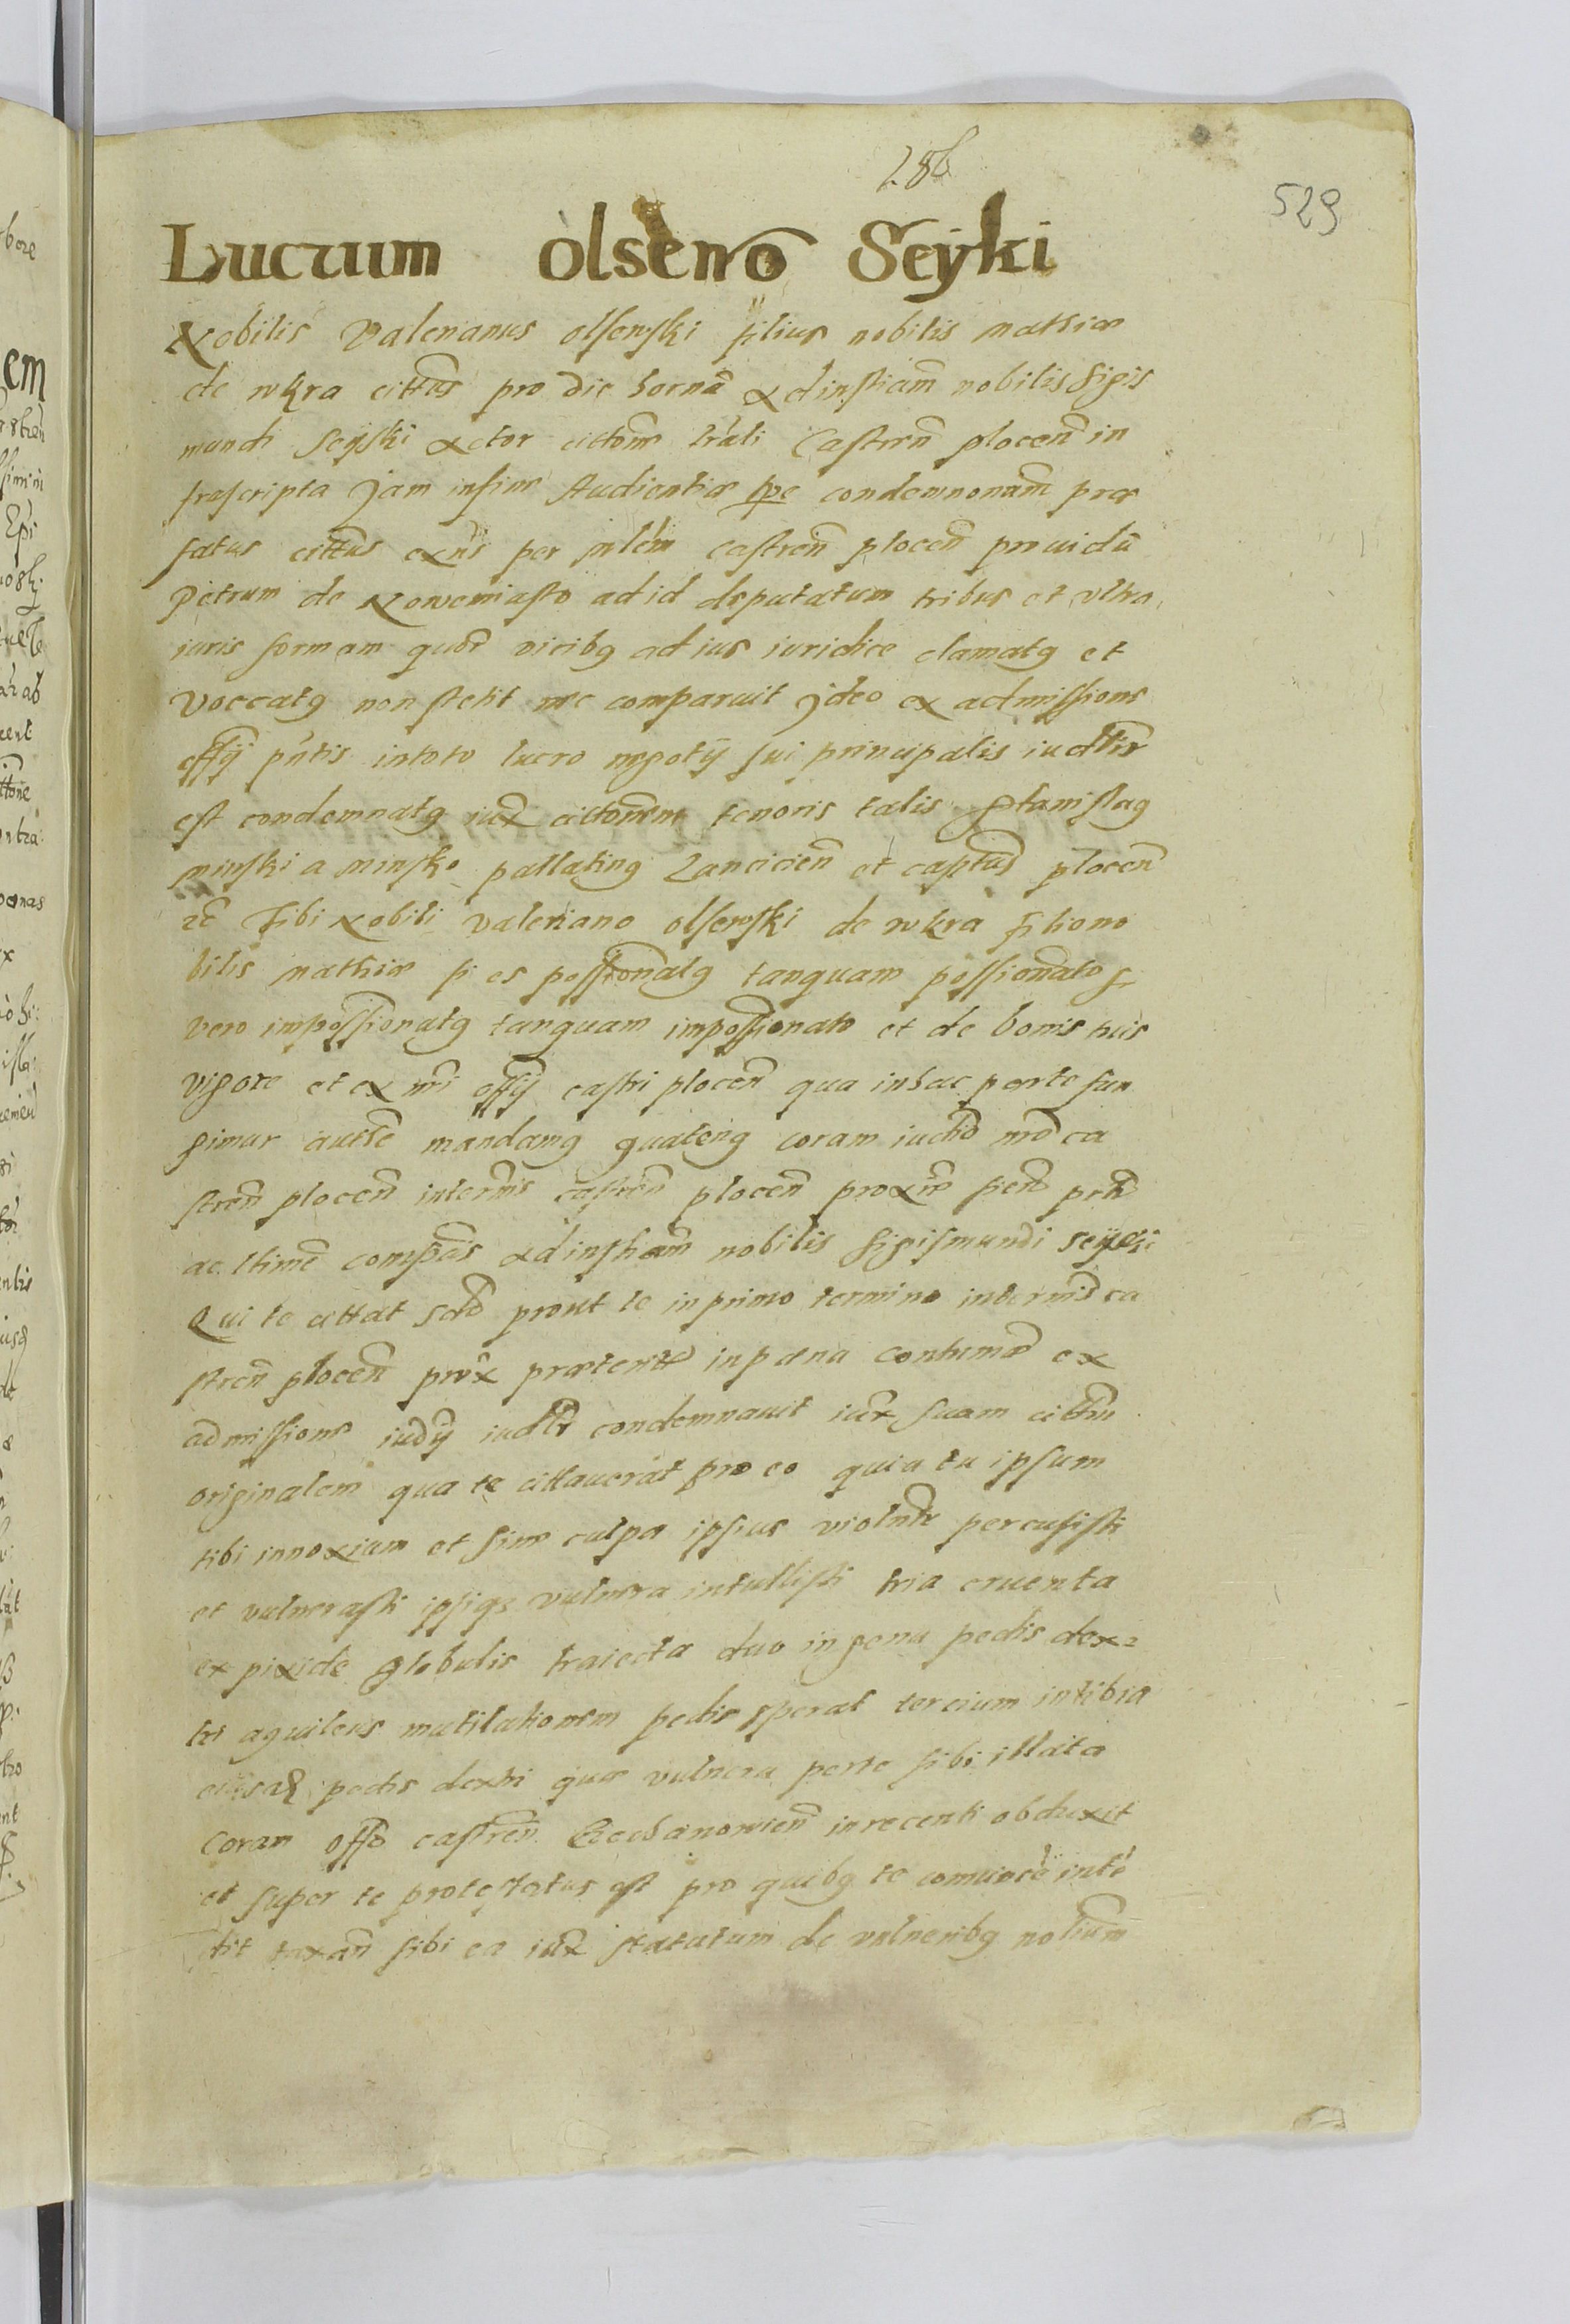 286
529
Lucrum olsewo Seyki
Nobilis Valerianus olsewski filius nobilis mathiæ
de wkra cittūs pro die hornā ad instiam̄ nobilis Sigis
mundi Seyski actor cittone lrāli Castren̄ plocen̄ in
frascripta Jam in fine Audientiæ spe condemnonam̄ præ
fatus cittus exn̄s per mlem̄ castren̄ plocen̄ prouidū
Petrum de Nowemiasto ad id deputatum tribus et vltra
iuris formam quor̄ vicibꝫ ad ius iuridice clamatꝫ et
Voccatꝫ non stetit nec comparuit Jdeo ex admissione
offij pn̄tis in toto lucro negotij sui principalis iudlr̄
est condemnatꝫ iux̄ cittonem tenoris talis Stanislaꝫ
minski a minsko pallatinꝫ Lancicien̄ et captūs plocen̄
rē Tibi Nobili Valeriano olsewski de wkra filio no
bilis mathiæ si es possionatꝫ tanquam possionato si
vero impossionatꝫ tanquam impossionato et de bonis tuis
vigore et ex nr̄i offij castri plocen̄ qua in hac parte fun
gimur auctē mandamꝫ quatenꝫ coram iudō nrō ca
stren̄ plocen̄ in termis castren̄ plocen̄ proxīe fien̄ prn̄
ac ltime compās ad instiam̄ nobilis Sigismundi Seyski
Qui te cittat scdō prout te in primo termino in termīs ca
stren̄ plocen̄ prox̄ præterit in pæna contumæ ex
admissione iudij iudlr̄ condemnauit iux̄ suam cittōm
originalem qua te cittauerat pro eo quia tu ipsum
tibi innoxium et sine culpa ipsius violntr̄ percussisti
et vulnerasti ipsiqꝫ vulnera intullisti tria cruenta
ex pixide globulis traiecta duo in genu pedis dex
tri aquilens mutilationem pedis sperat tercium in tibia
eiusdē pedis dextri quæ vulnera per te sibi illata
Coram offō castren̄ in recenti obduxit
et super te protestatus est pro quibꝫ te conuincē intē
dit taxan̄ sibi ea iux̄ statutum de vulneribꝫ nobium̄